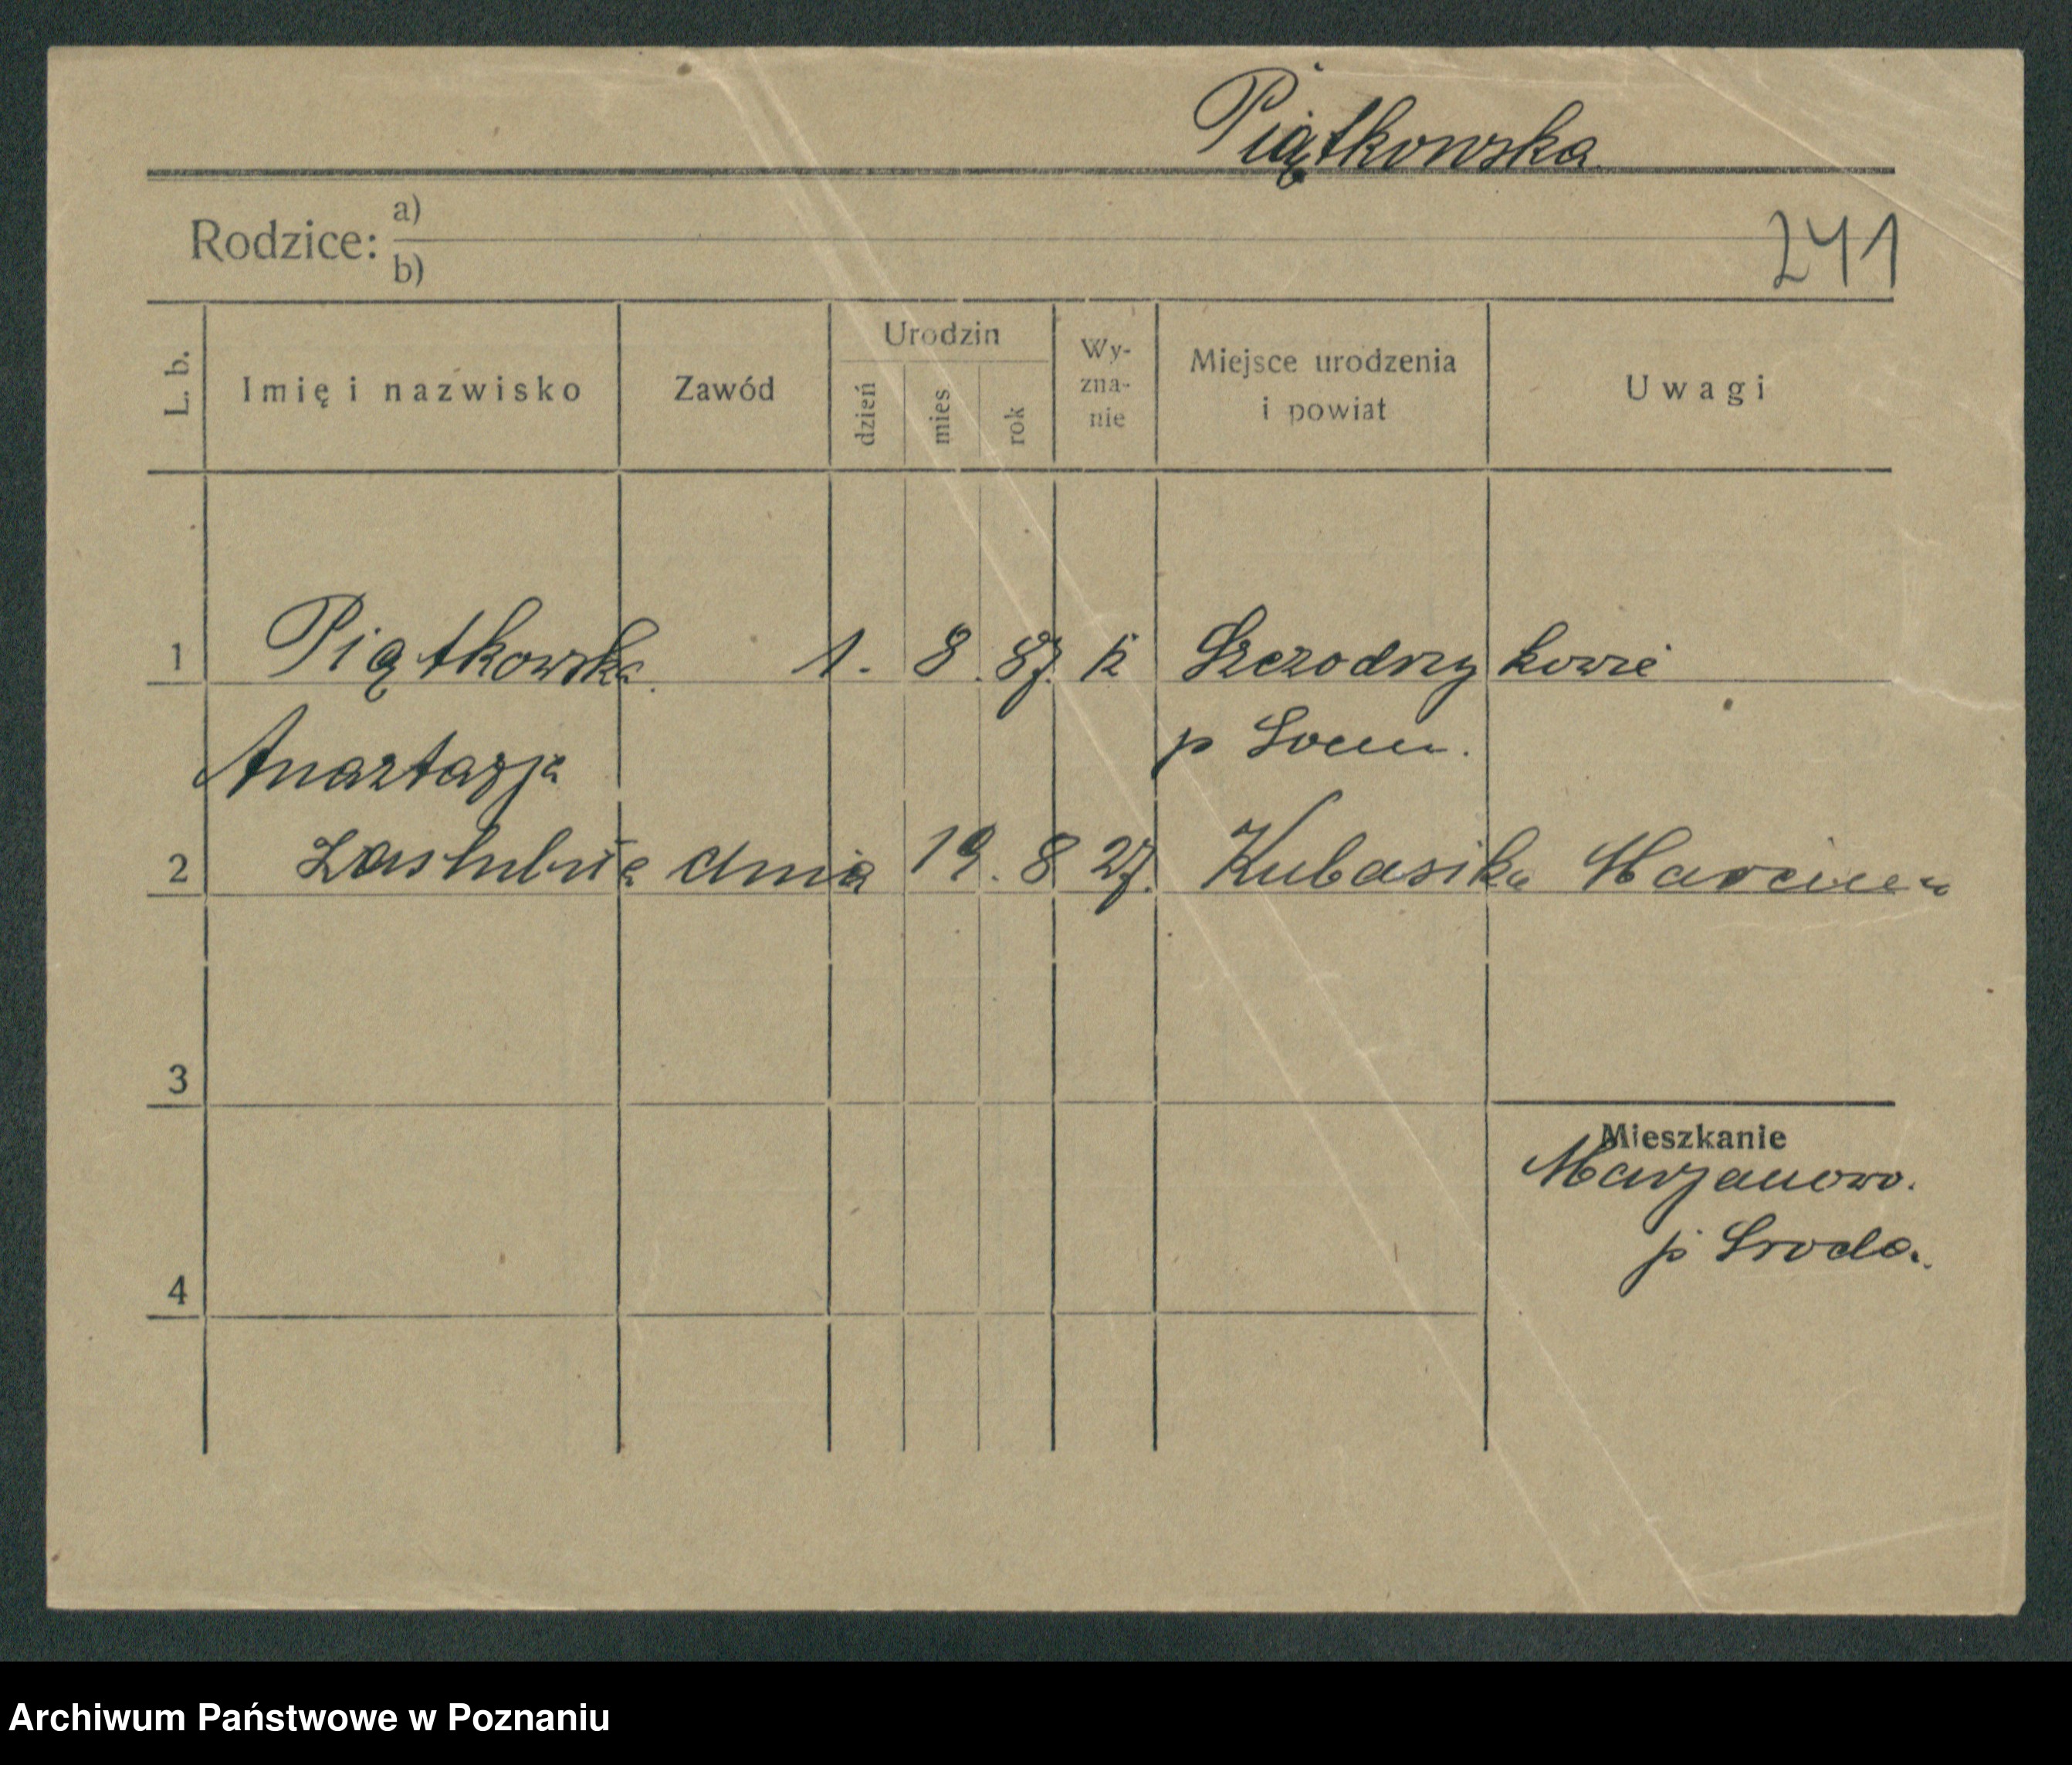 Piątkowska
Rodzice: a)
b)
241
L. b. Imię i nazwisko Zawód Urodzin dzień mies rok Wy-zna-nie Miejsce urodzenia i powiat Uwagi
1 Piątkowska 1. 8. 87. k Szczodrzykowie
Anastazja p Srem.
2 Zaślubiła dnia 19. 8 27. Kubasika Marcina
3
Mieszkanie
Marjanowo.
p Sroda.
4
Archiwum Państwowe w Poznaniu